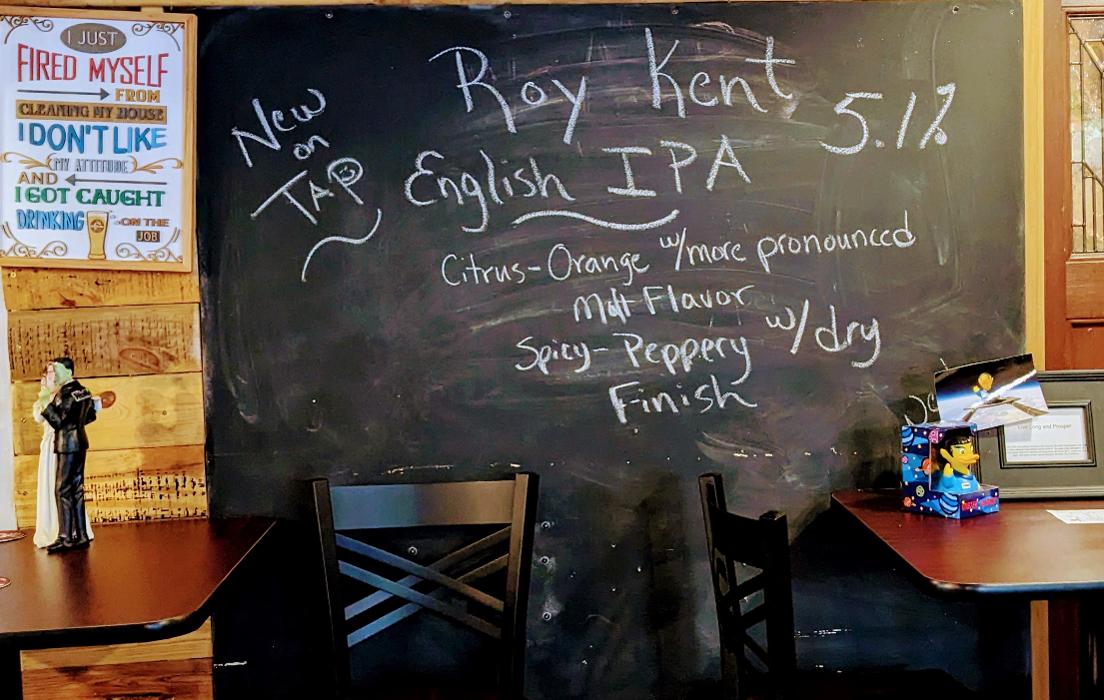 I JUST
FIRED MYSELF
FROM
CLEANING MY HOUSE
I DON'T LIKE
MY ATTITUDE
AND
I GOT CAUGHT
DRINKING ON THE
JOB
New
on
TAP
Roy Kent
5.1%
English IPA
Citrus-Orange w/more pronounced
Malt Flavor
Spicy-Peppery w/dry
Finish
Live Long and Prosper